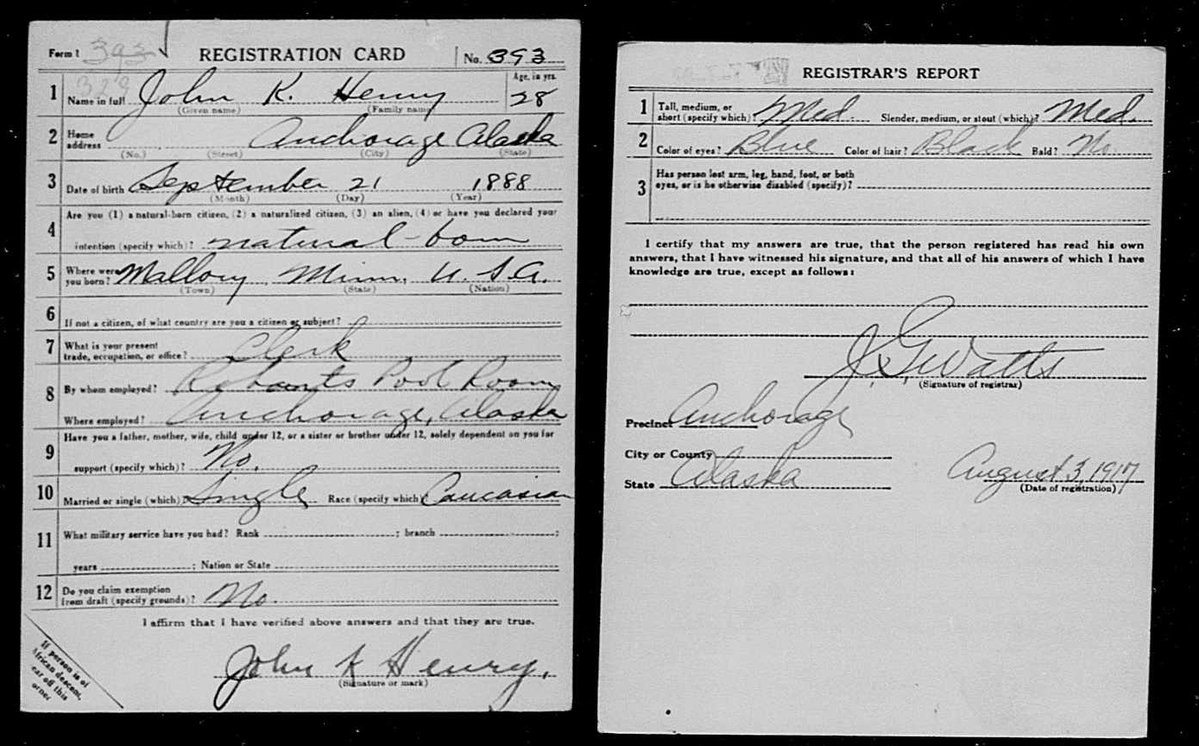 Form 1 393 REGISTRATION CARD No. 393
1 Name in full John K. Henry Age, in yrs. 28
329 (Given name) (Family name)
2 Home address Anchorage Alaska
(No.) (Street) (City) (State)
3 Date of birth September 21 1888
(Month) (Day) (Year)
4 Are you (1) a natural-born citizen, (2) a naturalized citizen, (3) an alien, (4) or have you declared your
intention (specify which)? natural-born
5 Where were you born? Mallory, Minn. U.S.A.
(Town) (State) (Nation)
6 If not a citizen, of what country are you a citizen or subject?
7 What is your present trade, occupation, or office? Clerk
8 By whom employed? Pool Room
Where employed? Anchorage, Alaska
9 Have you a father, mother, wife, child under 12, or a sister or brother under 12, solely dependent on you for
support (specify which)? No.
10 Married or single (which)? Single Race (specify which)? Caucasian
11 What military service have you had? Rank ; branch ;
years ; Nation or State
12 Do you claim exemption from draft (specify grounds)? No.
I affirm that I have verified above answers and that they are true.
John K Henry.
(Signature or mark)
If person is of
African descent,
tear off this
corner
REGISTRAR'S REPORT
1 Tall, medium, or short (specify which)? Med. Slender, medium, or stout (which)? Med.
2 Color of eyes? Blue Color of hair? Black Bald? No
3 Has person lost arm, leg, hand, foot, or both
eyes, or is he otherwise disabled (specify)?
I certify that my answers are true, that the person registered has read his own
answers, that I have witnessed his signature, and that all of his answers of which I have
knowledge are true, except as follows:
J. G. Watts
(Signature of registrar)
Precinct Anchorage
City or County
State Alaska August 3, 1917
(Date of registration)